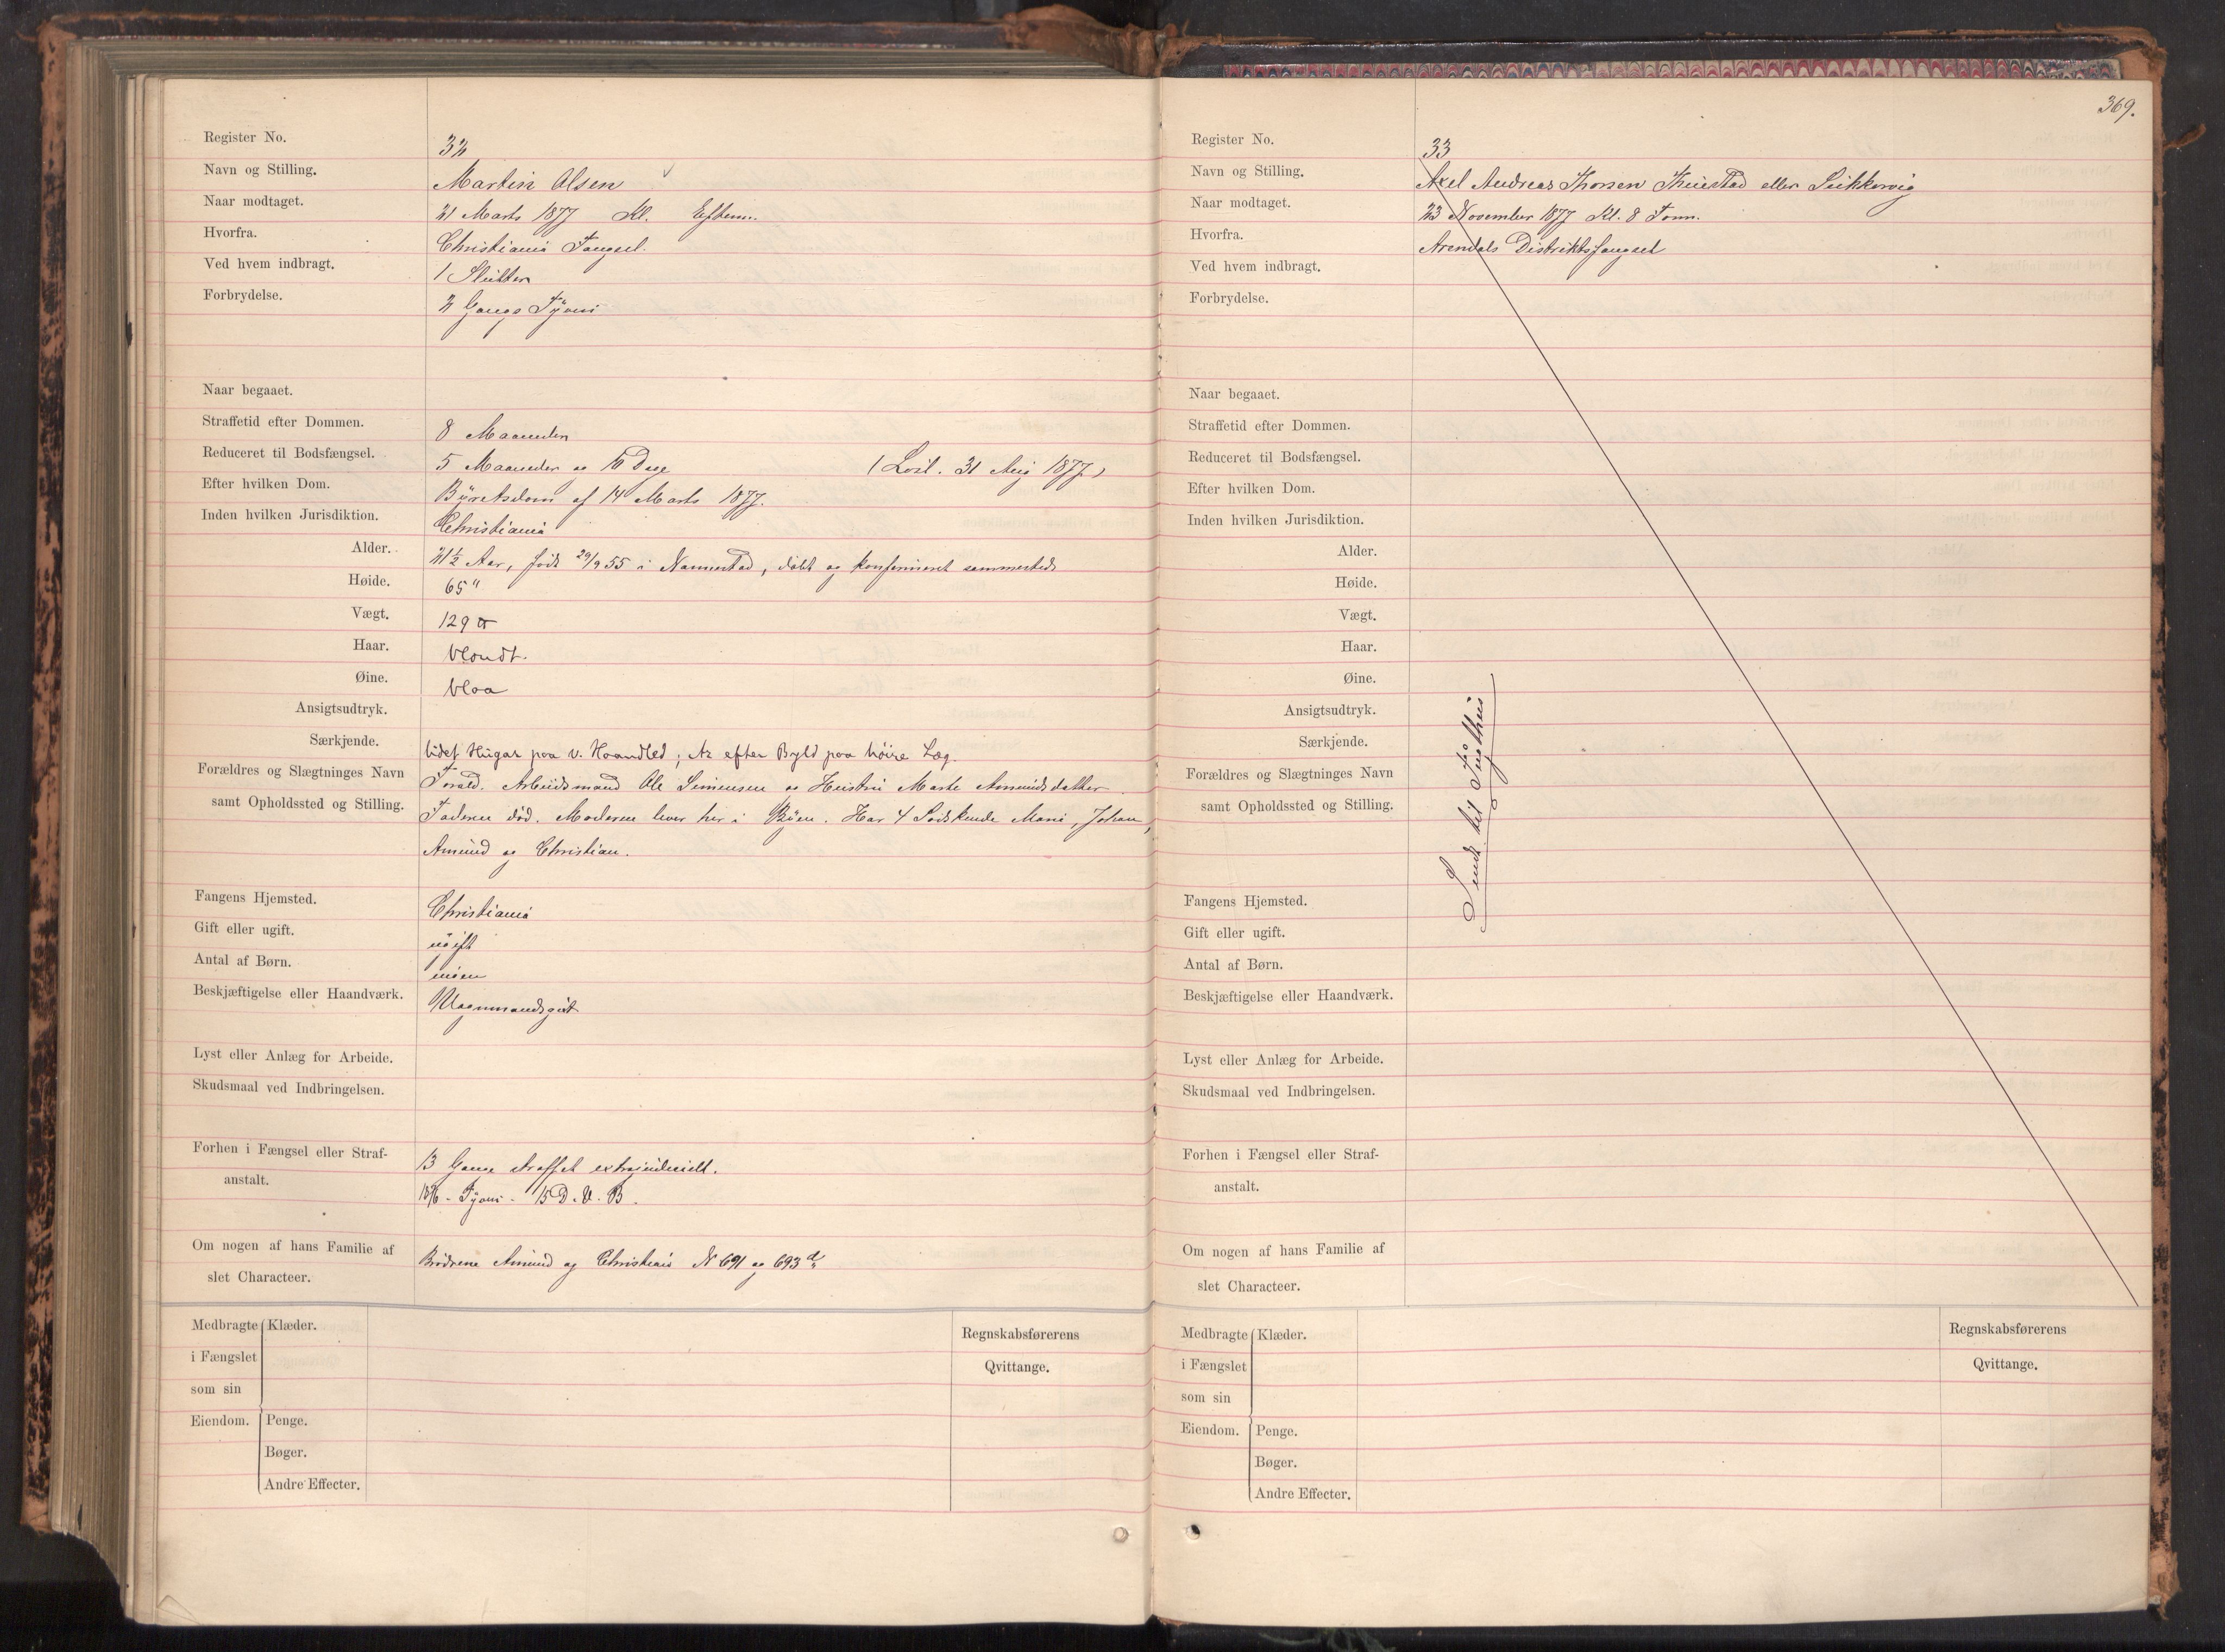 Register No. 32
Navn og Stilling. Martin Olsen
Naar modtaget. 21 Marts 1877 Kl. Efterm.
Hvorfra. Christiania Fængsel.
Ved hvem indbragt. 1 Slutter
Forbrydelse. 2 Gangs Tyveri
Naar begaaet.
Straffetid efter Dommen. 8 Maaneder
Reduceret til Bodsfængsel. 5 Maaneder og 10 Dage (Løsl. 31 Aug 1877)
Efter hvilken Dom. Byretsdom af 14 Marts 1877.
Inden hvilken Jurisdiktion. Christiania
Alder. 21½ Aar, født 29/9 55 i Nannestad, døbt og konfirmeret sammesteds
Høide. 65"
Vægt. 129 ℔
Haar. blondt.
Øine. blaa
Ansigtsudtryk.
Særkjende. lidet Hugar paa v. Haandled; Ar efter Byld paa høire Læg.
Forældres og Slægtninges Navn Foræld. Arbeidsmand Ole Simensen og Hustru Marte Amundsdatter.
samt Opholdssted og Stilling. Faderen død. Moderen lever her i Byen. Har 4 Sødskende Marie, Johan,
Amund og Christian.
Fangens Hjemsted. Christiania
Gift eller ugift. ugift
Antal af Børn. ingen
Beskjæftigelse eller Haandværk. Vognmandsgut
Lyst eller Anlæg for Arbeide.
Skudsmaal ved Indbringelsen.
Forhen i Fængsel eller Straf- 13 Gange straffet extrajudicielt.
anstalt. 1876 - Tyveri - 15 D. V. B.
Om nogen af hans Familie af Brødrene Amund og Christian N 691 og 693
slet Characteer.
Medbragte Klæder.
i Fængslet
som sin
Eiendom. Penge.
Bøger.
Andre Effecter.
Regnskabsførerens
Qvittange.
369.
Register No. 33
Navn og Stilling. Axel Andreas Thorsen eller
Naar modtaget. 23 November 1877 Kl. 8 Form.
Hvorfra. Arendals Distriktsfængsel
Ved hvem indbragt.
Forbrydelse.
Naar begaaet.
Straffetid efter Dommen.
Reduceret til Bodsfængsel.
Efter hvilken Dom.
Inden hvilken Jurisdiktion.
Alder.
Høide.
Vægt.
Haar.
Øine.
Ansigtsudtryk.
Særkjende.
Forældres og Slægtninges Navn
samt Opholdssted og Stilling.
Sendt til Tugthus
Fangens Hjemsted.
Gift eller ugift.
Antal af Børn.
Beskjæftigelse eller Haandværk.
Lyst eller Anlæg for Arbeide.
Skudsmaal ved Indbringelsen.
Forhen i Fængsel eller Straf-
anstalt.
Om nogen af hans Familie af
slet Characteer.
Medbragte Klæder.
i Fængslet
som sin
Eiendom. Penge.
Bøger.
Andre Effecter.
Regnskabsførerens
Qvittange.